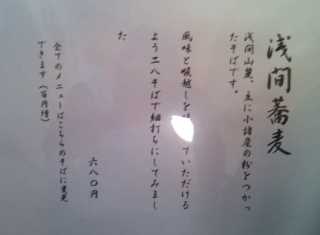 浅間蕎麦
浅間山麓、主に小諸産の粉をつかっ
たそばです。
風味と喉越しを していただける
よう二八そばで細打ちにしてみまし
た
六八〇円
全てのメニューはこちらのそばに変更
できます(百円増)